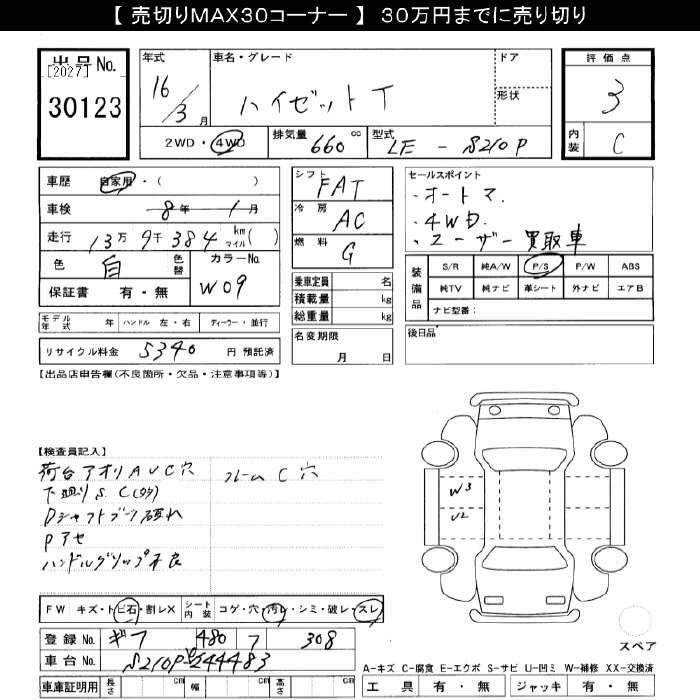 【 売切りMAX30コーナー 】 30万円までに売り切り
出品No.
[2027]
30123
年式
16/3月
車名・グレード
ハイゼットT
ドア
形状
評価点
3
内装
C
2WD・4WD
排気量
660 cc
型式
LE-S210P
車歴
自家用・( )
車検
8年 1月
走行
13万9千384 km マイル( )
色
白
色替
カラーNo.
W09
保証書 有・無
シフト
FAT
冷房
AC
燃料
G
乗車定員 名
積載量 kg
総重量 kg
セールスポイント
・オートマ.
・4WD.
・ユーザー買取車
装備品
S/R 純A/W P/S P/W ABS
純TV 純ナビ 革シート 外ナビ エアB
ナビ型番:
モデル年式 年 ハンドル 左・右 ディーラー・並行
リサイクル料金 5340 円 預託済
名変期限
月 日
後日品
【出品店申告欄(不良箇所・欠品・注意事項等)】
【検査員記入】
荷台アオリAUC穴 フレームC穴
下廻りS.C(穴)
Dシャフトブーツ破れ
Pアセ
ハンドルグリップ不良
W3
U2
FW キズ・トビ石・割レX シート内装 コゲ・穴・汚レ・シミ・破レ・スレ
登録No. ギフ 480 7 308
車台No. S210P-0244483
スペア
A-キズ C-腐食 E-エクボ S-サビ U-凹ミ W-補修 XX-交換済
車庫証明用 長さ cm 幅 cm 高さ cm
工具 有・無 ジャッキ 有・無